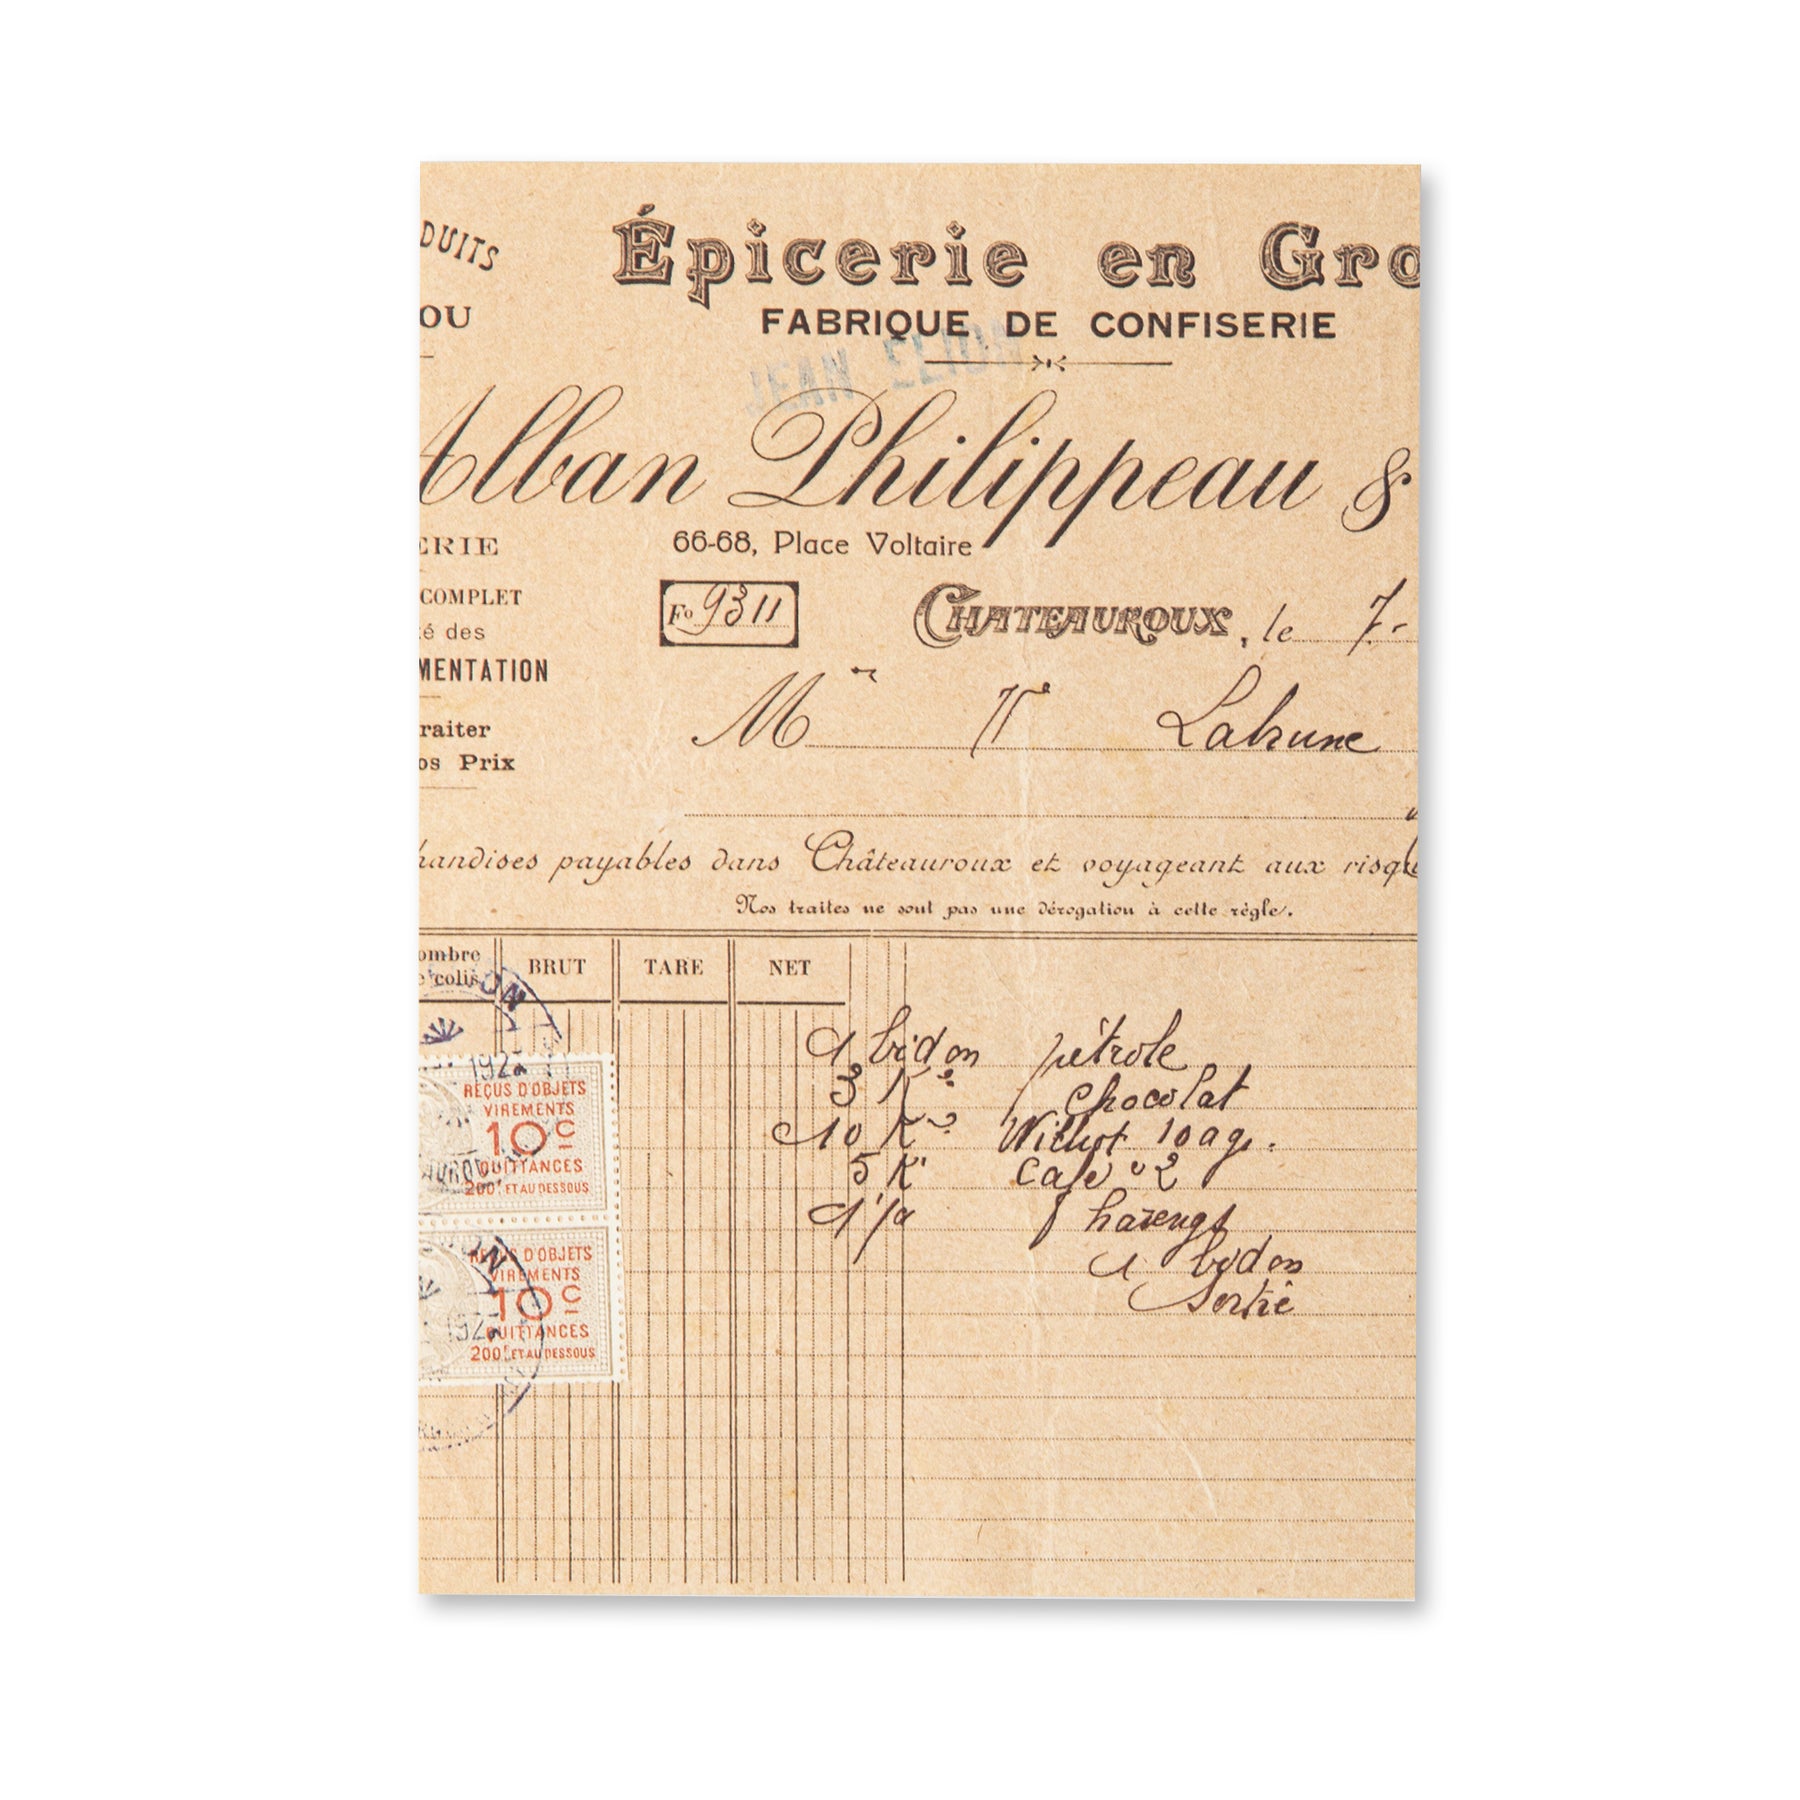 DUITS
OU
Épicerie en Gro
FABRIQUE DE CONFISERIE
JEAN
Alban Philippeau &
66-68, Place Voltaire
ERIE
COMPLET
é des
MENTATION
raiter
os Prix
Fo 9311
CHATEAUROUX, le 7-
M Labrune
handises payables dans Châteauroux et voyageant aux risq
Nos traites ne sont pas une dérogation à cette règle.
ombre
e colis
BRUT TARE NET
1 bidon pétrole
3 K chocolat
10 K 10
5 K Café 2
1 harengs
1 bidon
sortie
192
REÇUS D'OBJETS
VIREMENTS
10c
QUITTANCES
200f ET AU DESSOUS
REÇUS D'OBJETS
VIREMENTS
10c
QUITTANCES
200f ET AU DESSOUS
192